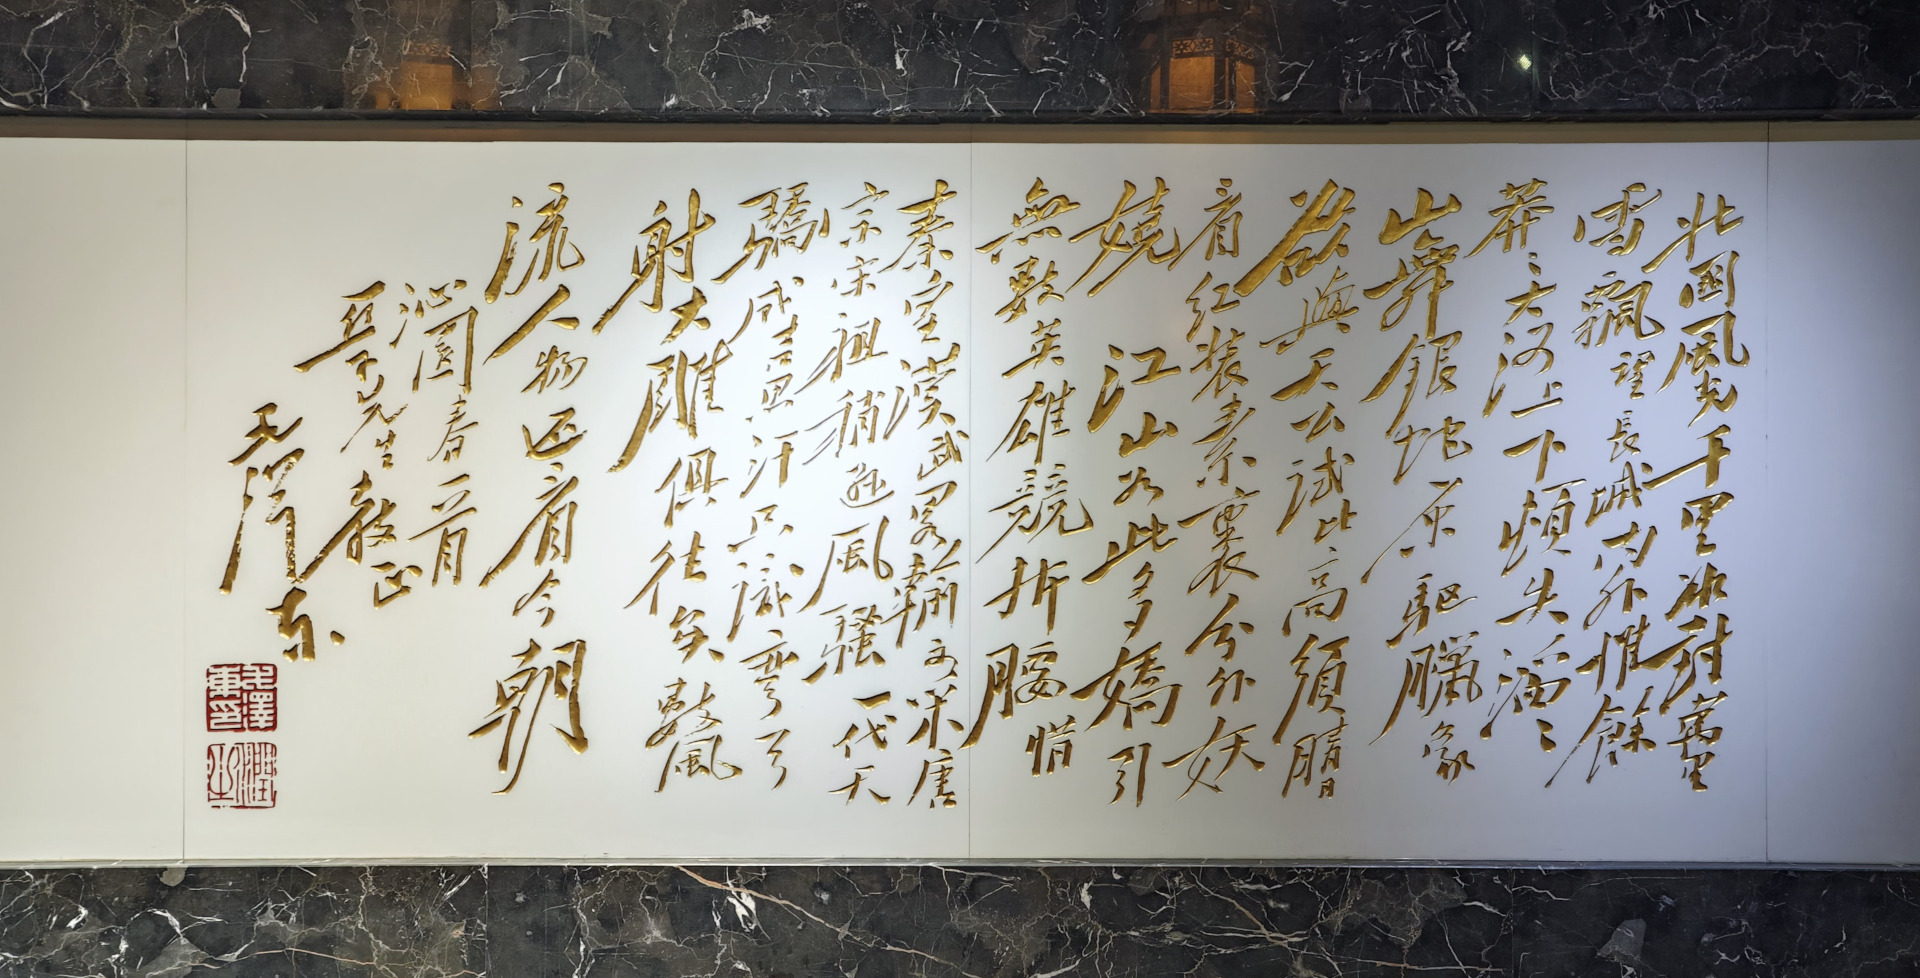 北國風光千里冰封萬里
雪飄望長城內外惟餘
莽〻大河上下頓失滔〻
山舞銀蛇原驅臘象
欲與天公試比高須晴日
看紅裝素裹分外妖
嬈 江山如此多嬌引
無數英雄競折腰惜
秦皇漢武略輸文采唐
宗宋祖稍遜風騷一代天
驕成吉思汗只識彎弓
射大雕俱往矣數風
流人物还看今朝
沁園春一首
亞子先生教正
毛澤東
毛澤東印
潤之